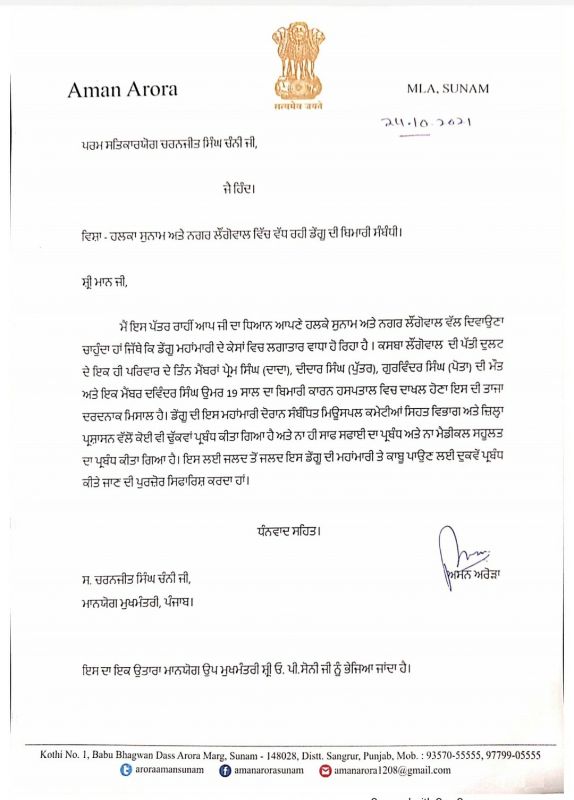 सत्यमेव जयते
Aman Arora
MLA, SUNAM
24.10.2021
ਪਰਮ ਸਤਿਕਾਰਯੋਗ ਚਰਨਜੀਤ ਸਿੰਘ ਚੰਨੀ ਜੀ,
ਜੈ ਹਿੰਦ।
ਵਿਸ਼ਾ - ਹਲਕਾ ਸੁਨਾਮ ਅਤੇ ਨਗਰ ਲੌਂਗੋਵਾਲ ਵਿੱਚ ਵੱਧ ਰਹੀ ਡੇਂਗੂ ਦੀ ਬਿਮਾਰੀ ਸੰਬੰਧੀ।
ਸ਼੍ਰੀ ਮਾਨ ਜੀ,
ਮੈਂ ਇਸ ਪੱਤਰ ਰਾਹੀਂ ਆਪ ਜੀ ਦਾ ਧਿਆਨ ਆਪਣੇ ਹਲਕੇ ਸੁਨਾਮ ਅਤੇ ਨਗਰ ਲੌਂਗੋਵਾਲ ਵੱਲ ਦਿਵਾਉਣਾ
ਚਾਹੁੰਦਾ ਹਾਂ ਜਿੱਥੇ ਕਿ ਡੇਂਗੂ ਮਹਾਂਮਾਰੀ ਦੇ ਕੇਸਾਂ ਵਿਚ ਲਗਾਤਾਰ ਵਾਧਾ ਹੋ ਰਿਹਾ ਹੈ । ਕਸਬਾ ਲੌਂਗੋਵਾਲ ਦੀ ਪੱਤੀ ਦੁਲਟ
ਦੇ ਇਕ ਹੀ ਪਰਿਵਾਰ ਦੇ ਤਿੰਨ ਮੈਂਬਰਾਂ ਪ੍ਰੇਮ ਸਿੰਘ (ਦਾਦਾ), ਦੀਦਾਰ ਸਿੰਘ (ਪੁੱਤਰ), ਗੁਰਵਿੰਦਰ ਸਿੰਘ (ਪੋਤਾ) ਦੀ ਮੌਤ
ਅਤੇ ਇਕ ਮੈਂਬਰ ਦਵਿੰਦਰ ਸਿੰਘ ਉਮਰ 19 ਸਾਲ ਦਾ ਬਿਮਾਰੀ ਕਾਰਨ ਹਸਪਤਾਲ ਵਿਚ ਦਾਖਲ ਹੋਣਾ ਇਸ ਦੀ ਤਾਜਾ
ਦਰਦਨਾਕ ਮਿਸਾਲ ਹੈ। ਡੇਂਗੂ ਦੀ ਇਸ ਮਹਾਂਮਾਰੀ ਦੋਰਾਨ ਸੰਬੰਧਿਤ ਮਿਉਂਸਪਲ ਕਮੇਟੀਆਂ ਸਿਹਤ ਵਿਭਾਗ ਅਤੇ ਜ਼ਿਲ੍ਹਾ
ਪ੍ਰਸ਼ਾਸਨ ਵੱਲੋਂ ਕੋਈ ਵੀ ਢੁੱਕਵਾਂ ਪ੍ਰਬੰਧ ਕੀਤਾ ਗਿਆ ਹੈ ਅਤੇ ਨਾ ਹੀ ਸਾਫ ਸਫਾਈ ਦਾ ਪ੍ਰਬੰਧ ਅਤੇ ਨਾ ਮੈਡੀਕਲ ਸਹੂਲਤ
ਦਾ ਪ੍ਰਬੰਧ ਕੀਤਾ ਗਿਆ ਹੈ। ਇਸ ਲਈ ਜਲਦ ਤੋਂ ਜਲਦ ਇਸ ਡੇਂਗੂ ਦੀ ਮਹਾਂਮਾਰੀ ਤੇ ਕਾਬੂ ਪਾਉਣ ਲਈ ਦੁਕਵੇਂ ਪ੍ਰਬੰਧ
ਕੀਤੇ ਜਾਣ ਦੀ ਪੁਰਜ਼ੋਰ ਸਿਫਾਰਿਸ਼ ਕਰਦਾ ਹਾਂ।
ਧੰਨਵਾਦ ਸਹਿਤ।
ਅਮਨ ਅਰੋੜਾ
ਸ. ਚਰਨਜੀਤ ਸਿੰਘ ਚੰਨੀ ਜੀ,
ਮਾਨਯੋਗ ਮੁਖਮੰਤਰੀ, ਪੰਜਾਬ।
ਇਸ ਦਾ ਇਕ ਉਤਾਰਾ ਮਾਨਯੋਗ ਉਪ ਮੁਖਮੰਤਰੀ ਸ਼੍ਰੀ ਓ. ਪੀ.ਸੋਨੀ ਜੀ ਨੂੰ ਭੇਜਿਆ ਜਾਂਦਾ ਹੈ।
Kothi No. 1, Babu Bhagwan Dass Arora Marg, Sunam - 148028, Distt. Sangrur, Punjab, Mob. : 93570-55555, 97799-05555
aroraamansunam amanarorasunam amanarora1208@gmail.com